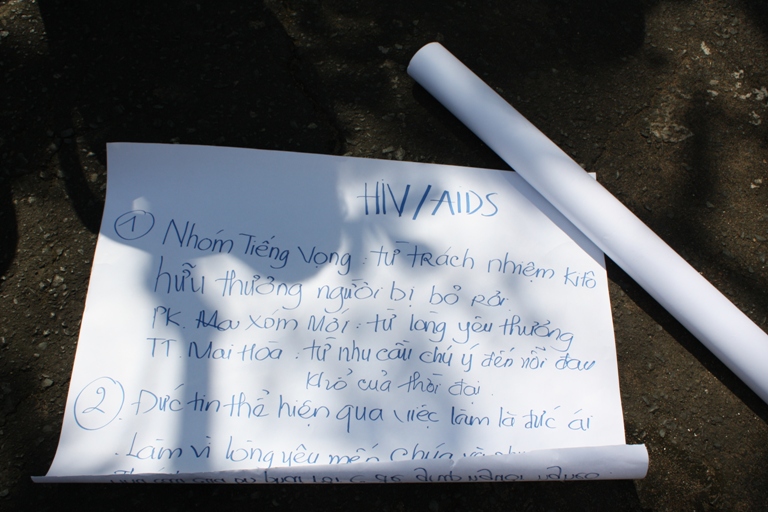 HIV/AIDS
① Nhóm Tiếng Vọng : từ trách nhiệm Kitô
hữu thương người bị bỏ rơi.
PK. Ma Xóm Mới : từ lòng yêu thương
TT. Mai Hòa : từ nhu cầu chú ý đến nỗi đau
khổ của thời đại.
② Đức tin thể hiện qua việc làm là đức ái
. Làm vì lòng yêu mến Chúa và